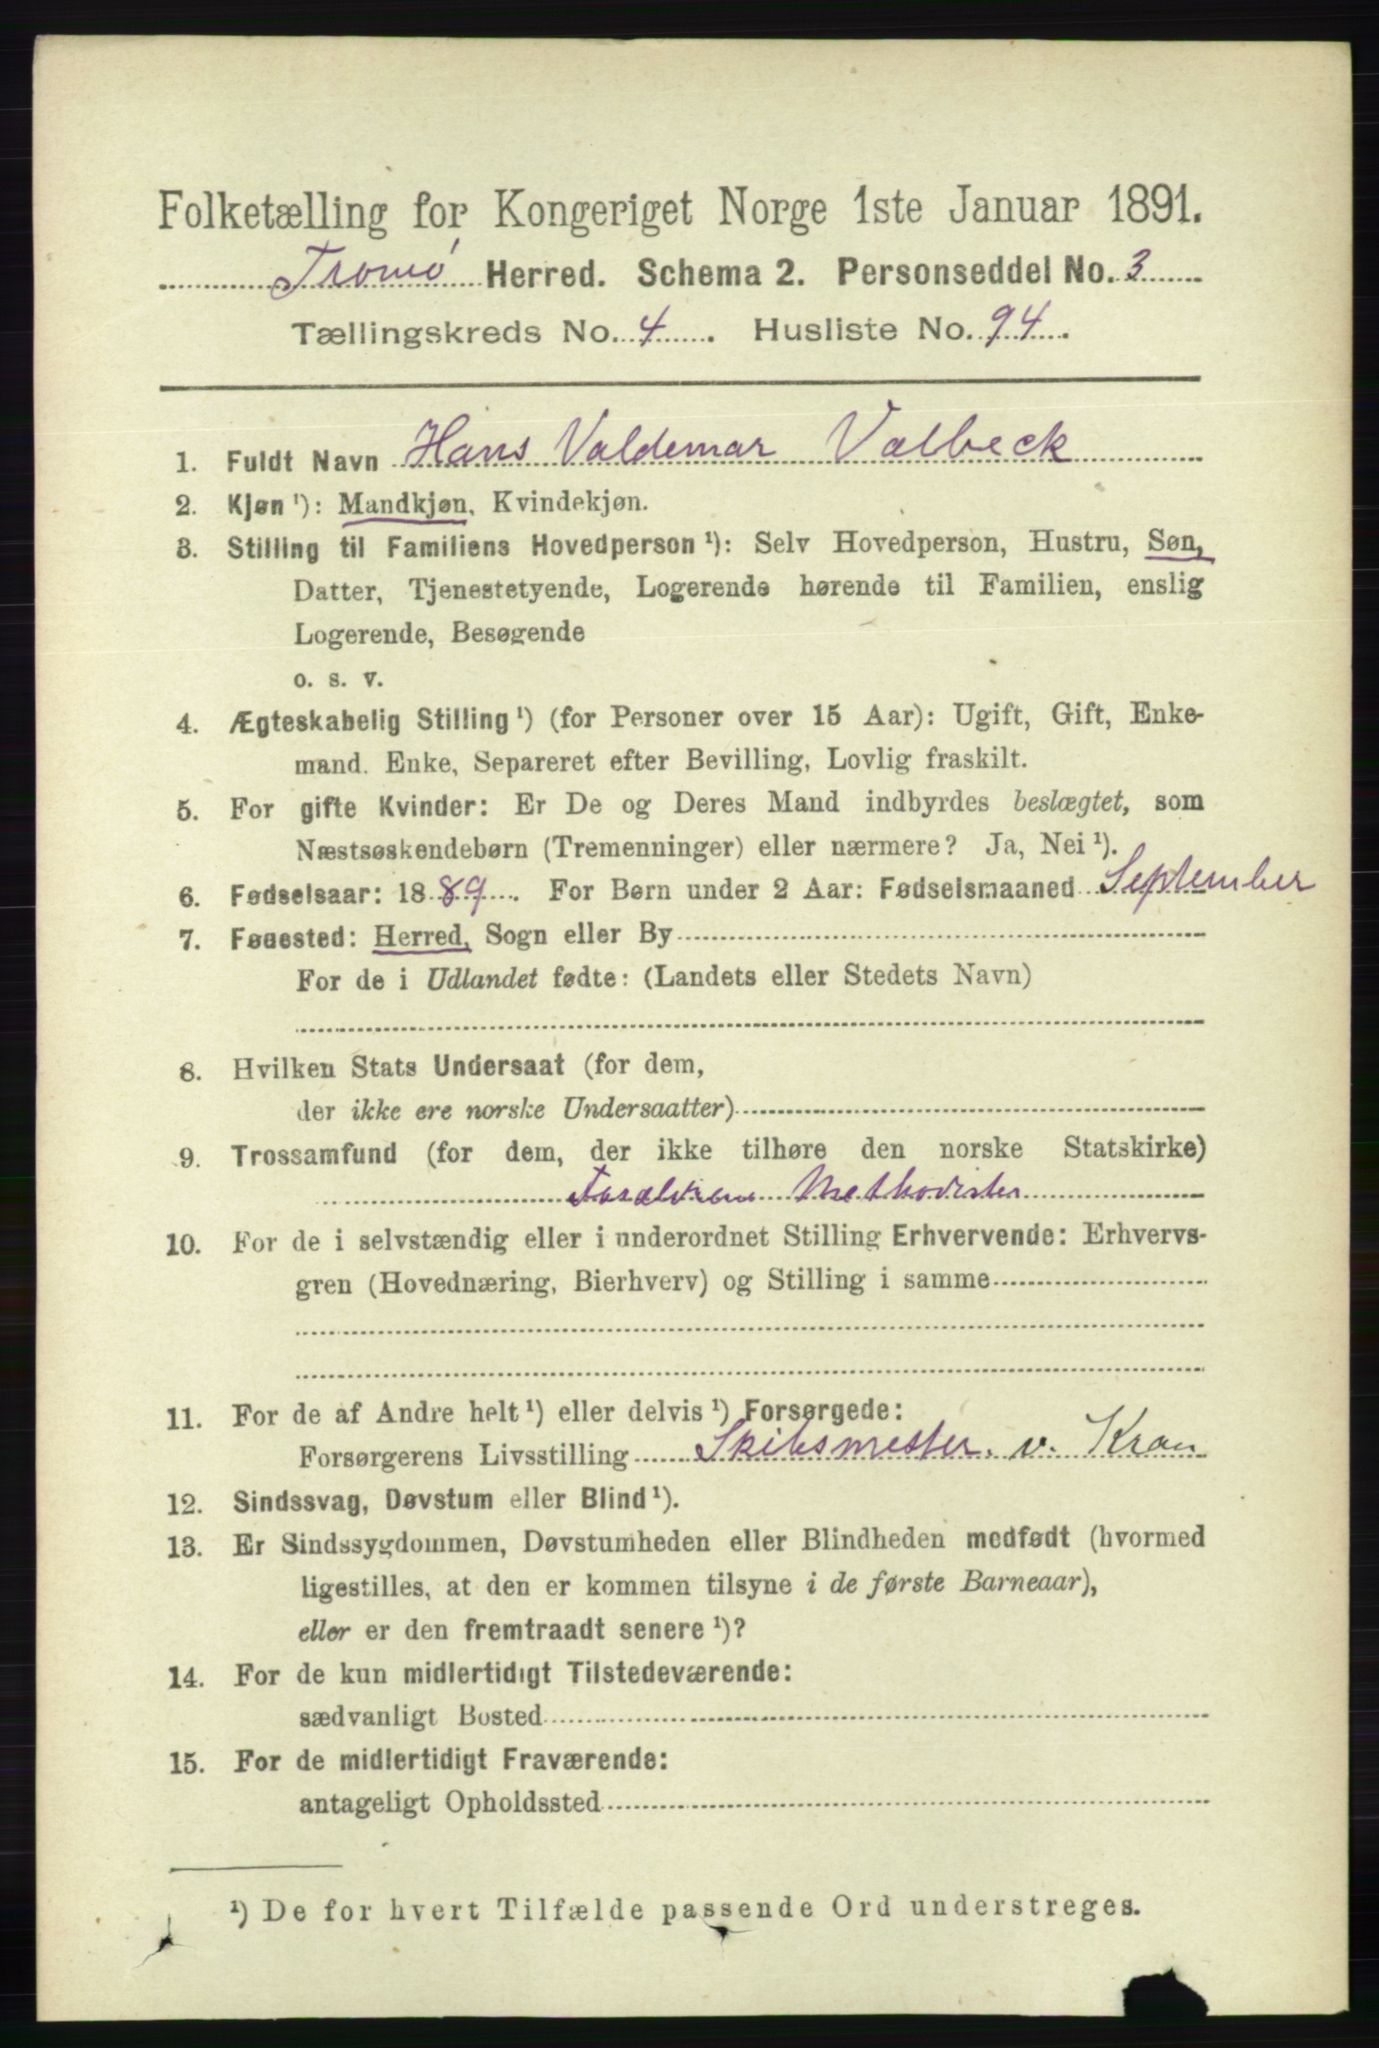 Folketælling for Kongeriget Norge 1ste Januar 1891.
Tromø Herred. Schema 2. Personseddel No. 3
Tællingskreds No. 4. Husliste No. 94.
1. Fuldt Navn Hans Valdemar Valbeck
2. Kjøn ¹): Mandkjøn, Kvindekjøn.
3. Stilling til Familiens Hovedperson ¹): Selv Hovedperson, Hustru, Søn,
Datter, Tjenestetyende, Logerende hørende til Familien, enslig
Logerende, Besøgende
o. s. v.
4. Ægteskabelig Stilling ¹) (for Personer over 15 Aar): Ugift, Gift, Enke-
mand. Enke, Separeret efter Bevilling, Lovlig fraskilt.
5. For gifte Kvinder: Er De og Deres Mand indbyrdes beslægtet, som
Næstsøskendebørn (Tremenninger) eller nærmere? Ja, Nei ¹).
6. Fødselsaar: 1889. For Børn under 2 Aar: Fødselsmaaned September
7. Fødested: Herred, Sogn eller By
For de i Udlandet fødte: (Landets eller Stedets Navn)
8. Hvilken Stats Undersaat (for dem,
der ikke ere norske Undersaatter)
9. Trossamfund (for dem, der ikke tilhøre den norske Statskirke)
Forældrene Methodister
10. For de i selvstændig eller i underordnet Stilling Erhvervende: Erhvervs-
gren (Hovednæring, Bierhverv) og Stilling i samme
11. For de af Andre helt ¹) eller delvis ¹) Forsørgede:
Forsørgerens Livsstilling Skibsmester. v. Kran
12. Sindssvag, Døvstum eller Blind ¹).
13. Er Sindssygdommen, Døvstumheden eller Blindheden medfødt (hvormed
ligestilles, at den er kommen tilsyne i de første Barneaar),
eller er den fremtraadt senere ¹)?
14. For de kun midlertidigt Tilstedeværende:
sædvanligt Bosted
15. For de midlertidigt Fraværende:
antageligt Opholdssted
¹) De for hvert Tilfælde passende Ord understreges.